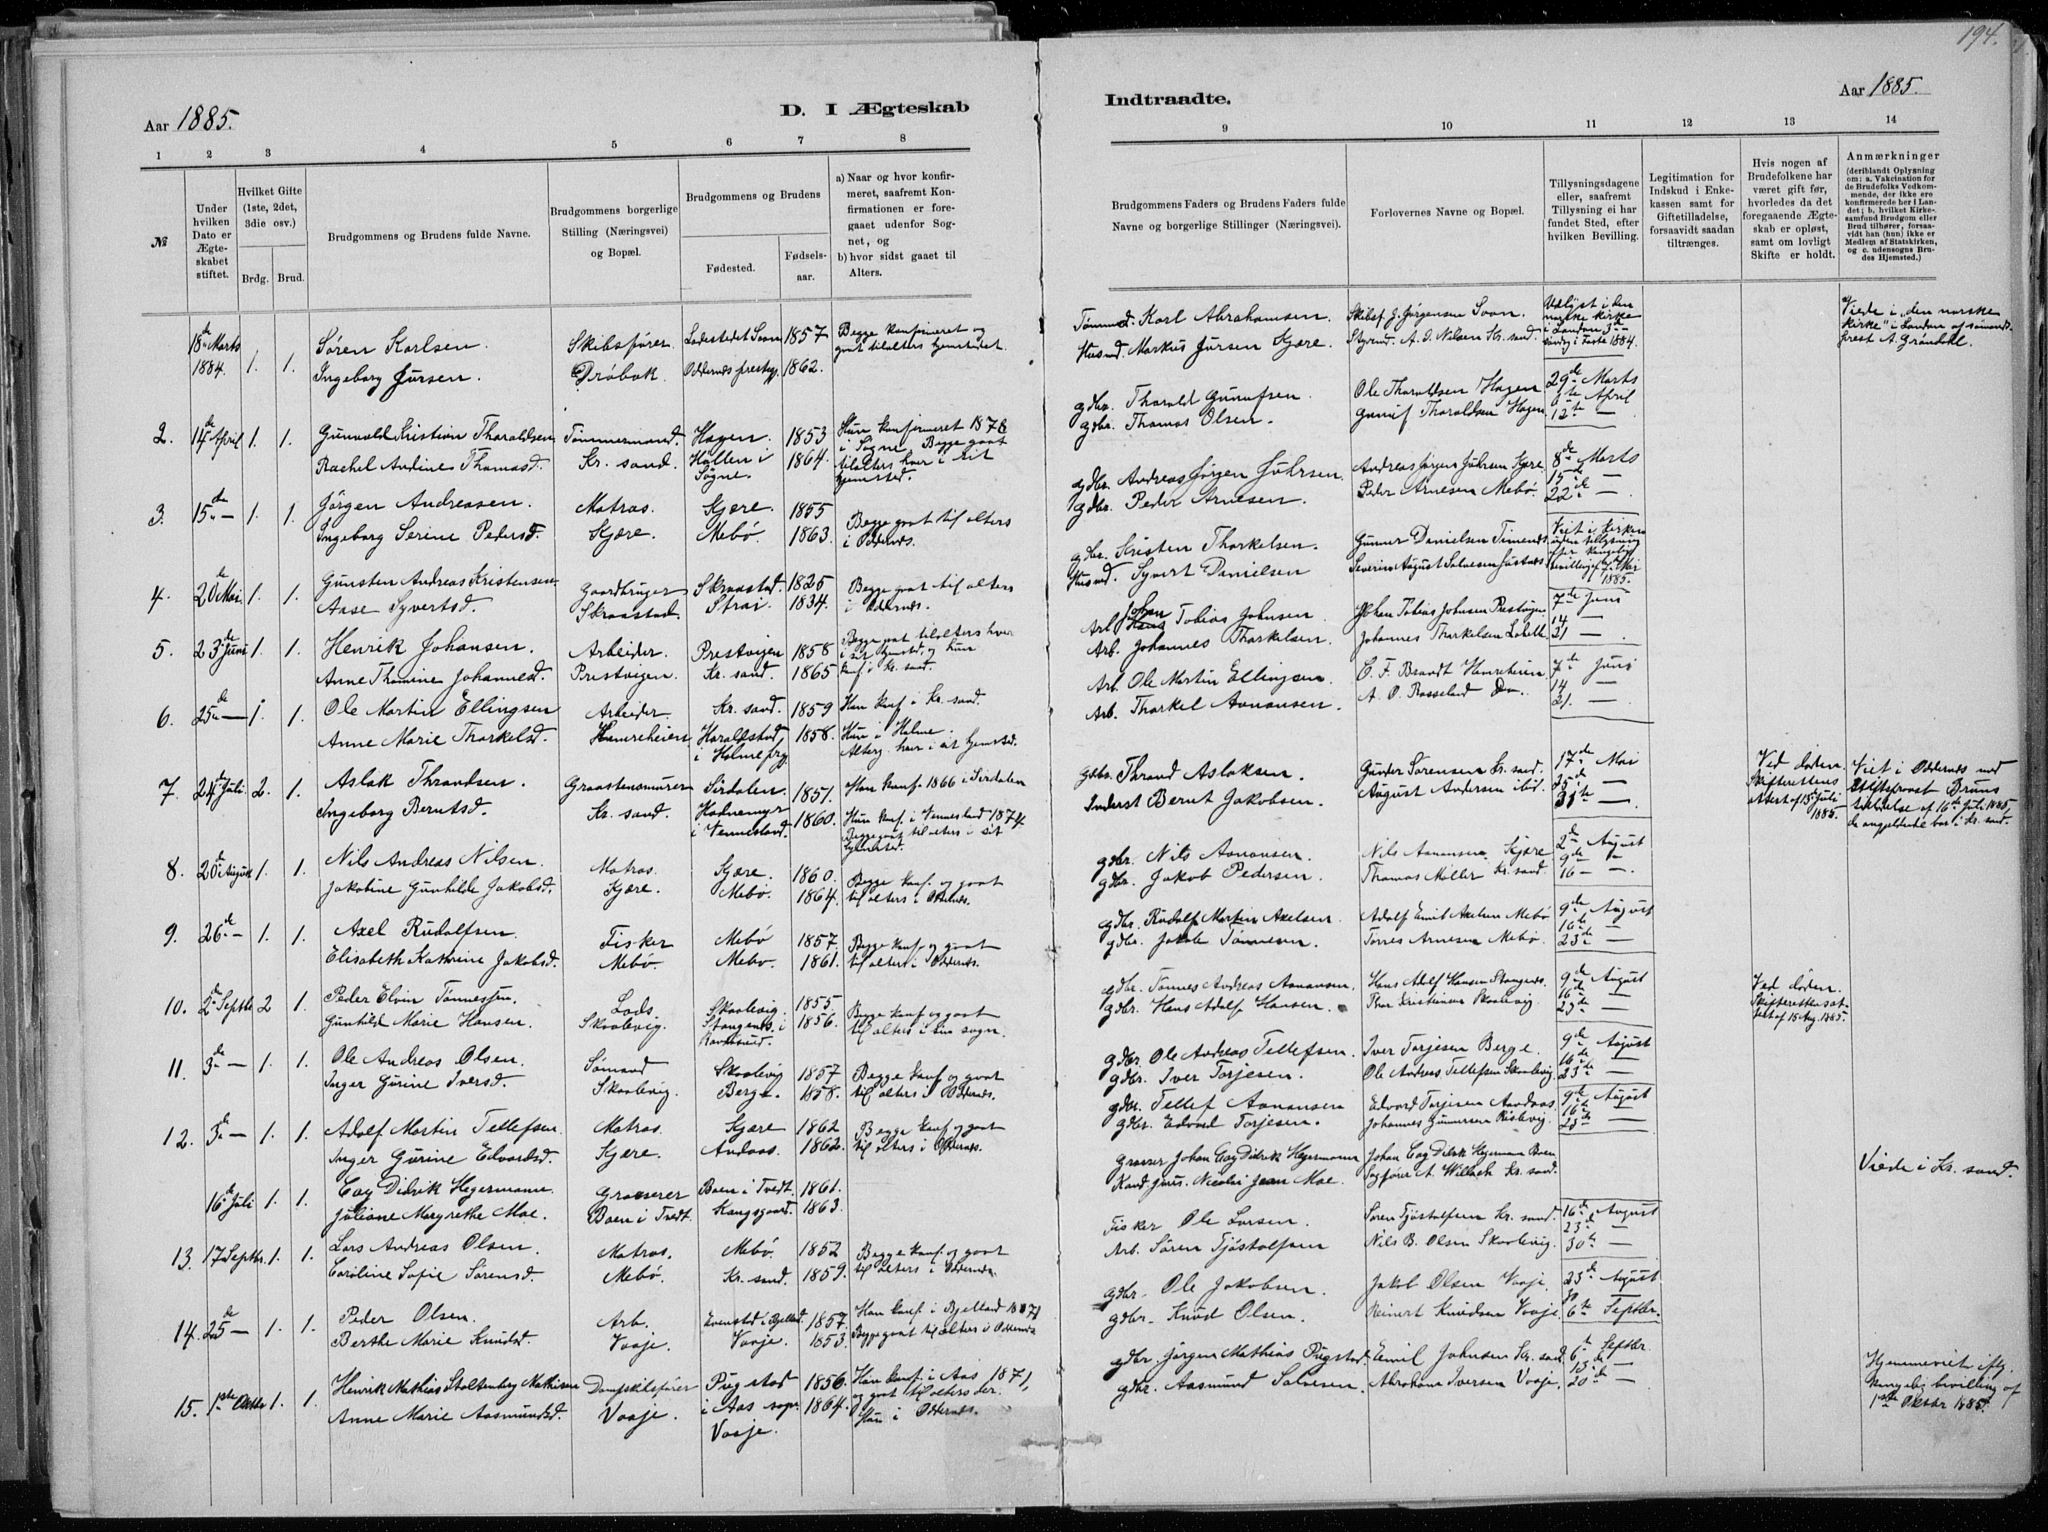 194.
Aar 1885.
D. I Ægteskab
Indtraadte.
Aar 1885.
1 2 3 4 5 6 7 8 9 10 11 12 13 14
№
Under hvilken Dato er Ægteskabet stiftet.
Hvilket Gifte (1ste, 2det, 3die osv.)
Brdg. Brud.
Brudgommens og Brudens fulde Navne.
Brudgommens borgerlige Stilling (Næringsvei) og Bopæl.
Brudgommens og Brudens
Fødested. Fødselsaar.
a) Naar og hvor konfirmeret, saafremt Konfirmationen er foregaaet udenfor Sognet, og
b) hvor sidst gaaet til Alters.
Brudgommens Faders og Brudens Faders fulde Navne og borgerlige Stillinger (Næringsvei).
Forlovernes Navne og Bopæl.
Tillysningsdagene eller, saafremt Tillysning ei har fundet Sted, efter hvilken Bevilling.
Legitimation for Indskud i Enkekassen samt for Giftetilladelse, forsaavidt saadan tiltrænges.
Hvis nogen af Brudefolkene har været gift før, hvorledes da det foregaaende Ægteskab er opløst, samt om lovligt Skifte er holdt.
Anmærkninger (deriblandt Oplysning om: a. Vakcination for de Brudefolks Vedkommende, der ikke ere konfirmerede her i Landet; b. hvilket Kirkesamfund Brudgom eller Brud tilhører, forsaavidt han (hun) ikke er Medlem af Statskirken, og c. udensogns Brudes Hjemsted.)
18de Marts 1884. 1. 1. Søren Karlsen. Skibsfører Ladestedet Soon 1857 Begge konfirmeret og gaat tilalters hjemstedet.
Ingeborg Jørsen. Drøbak. Oddernes prestegj. 1862.
Tømmermd. Karl Abrahamsen Skibsf. J. Jørgensen Soon. Udlyst i den norske kirke i London 3de
Husmd. Markus Jørsen Kjære. Styrmd. A. J. Nilsen Kr. sand. søndag i Faste 1884.
Viede i "den norske kirke" i London af sømandsprest A. Grøndahl.
2. 14de April 1. 1. Gunvald Kristian Tharaldsen Tømmermand. Hagen. 1853 Hun konfirmeret 1878 i Søgne. Begge gaat
Rachel Andine Thomasd. Kr. sand. Høllen i Søgne. 1864. tilalters hver i sit hjemsted.
gdbr. Tharald Gunufsen Ole Tharaldsen Hagen 29de Marts
gdbr. Thomas Olsen. Gunuf Tharaldsen Hagen. 9te April
12te —
3. 15de — 1. 1. Jørgen Andreasen. Matros. Kjære. 1855 Begge gaat til alters
Ingeborg Serine Pedersd. Kjære. Mebø. 1863. i Oddernes.
gdbr. Andreas Jørgen Jührsen. Andreas Jørgen Jührsen Kjære. 8de Marts
gdbr. Peder Arnesen. Peder Arnesen Mebø. 15de —
22de —
4. 20de Mai 1. 1. Gunsten Andreas Kristensen Gaardbruger Skraastad. 1825 Begge gaat til alters
Aase Syvertsd. Skraastad. Strai. 1834. i Oddernes.
gdbr. Kristen Thorkelsen. Gunner Danielsen Timenes
Husmd. Syvert Danielsen Severin August Salvesen
Viet i kirken uden tillysning efter kongelig bevilling af 7de Mai 1885.
5. 23de Juni 1. 1. Henrik Johansen. Arbeider. Prestvigen 1858 Begge gaat tilalters hver i sit hjemsted, og hun
Anne Thomine Johannesd. Prestvigen. Kr. sand. 1865 konf. i Kr. sand.
Arb. Johan Tobias Johnsen Johan Tobias Johnsen Prestvigen 7de Juni
Arb. Johannes Thorkelsen. Johannes Thorkelsen 14 —
21 —
6. 25de — 1. 1. Ole Martin Ellingsen Arbeider. Kr. sand. 1859 Han konf. i Kr. sand.
Anne Marie Thorkelsd. Hamreheien Haraldstad i Holme prg. 1858. Hun i Holme. Alterg. hver i sit hjemsted.
Arb. Ole Martin Ellingsen C. F. Brandt Hamreheien 7de Juni
Arb. Thorkel Aanonsen. A. O. Rosseland Do. 14 —
21. —
7. 24de Juli 2. 1. Aslak Throndsen. Graastensmurer Sirdalen 1851. Han konf. 1866 i Sirdalen
Ingeborg Berntsd. Kr. sand. i Vennesland. 1860. Hun konf. i Vennesland 1874. Begge gaat til alters i sit hjemsted.
gdbr. Thrond Aslaksen. Gunder Sørensen Kr. sand. 17de Mai
Inderst Bernt Jakobsen. August Andersen ibid. 25de —
31te —
Ved døden. Skifterettens attest af 15de Juli 1885.
Viet i Oddernes med Stiftsprovst Bruns tilladelse af 16de Juli 1885. da angjeldende bor i Kr. sand.
8. 20de August 1. 1. Nils Andreas Nilsen. Matros. Kjære. 1860. Begge konf. og gaat
Jakobine Gunhilde Jakobsd. Kjære. Mebø. 1864. til alters i Oddernes.
gdbr. Nils Aanonsen. Nils Aanonsen Kjære 2de August
gdbr. Jakob Pedersen. Thomas Møller Kr. sand. 9de —
16 —
9. 26de — 1. 1. Axel Rudolfsen. Fisker Mebø 1857. Begge konf. og gaat
Elisabeth Kathrine Jakobsd. Mebø. Mebø. 1861. til alters i Oddernes.
gdbr. Rudolf Martin Axelsen. Adolf Emil Axelsen Mebø 9de August
gdbr. Jakob Tønnesen. Torres Arnesen Mebø. 16de —
23de —
10. 2de Septbr 2 1. Peder Elvin Tønnessen. Lods Skaalevig. 1855 Begge konf. og gaat
Gunhild Marie Hansen. Skaalevig. Stangenes i Randesund. 1856. til alters i sogn.
gdbr. Tønnes Andreas Aanonsen. Hans Adolf Hansen Stangenes. 9de August
gdbr. Hans Adolf Hansen. Kristiansen Skaalevig. 16de —
23de —
Ved døden. Skifterettens attest af 15 Aug. 1885.
11. 3de — 1. 1. Ole Andreas Olsen. Sømand Skaalevig 1857 Begge konf. og gaat
Inger Gurine Iversd. Skaalevig. Berge. 1858. til alters i Oddernes.
gdbr. Ole Andreas Tellefsen. Iver Torjesen Berge. 9de August
gdbr. Iver Torjesen. Ole Andreas Tellefsen Skaalevig. 16de —
23de —
12. 3de — 1. 1. Adolf Martin Tellefsen. Matros. Kjære 1862 Begge konf. og gaat
Inger Gurine Edvardsd. Kjære. Andaas. 1862. til alters i Oddernes.
gdbr. Tellef Aanonsen Edvard Torjesen Aandaas. 9de August
gdbr. Edvard Torjesen. Johannes Gunnersen 16de —
23de —
16de Juli 1. 1. Cay Didrik Hegermann. Grosserer Boen i Tvedt. 1861.
Juliane Margrethe Moe. Boen i Tvedt. Kongsgaard. 1863.
Grosser Johan Cay Didrik Hegermann Johan Cay Didrik Hegermann Boen
Kand. juris. Nicolai Jean Moe. Sagfører A. Wilbach Kr. sand.
Viede i Kr. sand.
13. 17 Septbr. 1. 1. Lars Andreas Olsen. Matros. Mebø. 1852 Begge konf. og gaat
Caroline Sofie Sørensd. Mebø. Kr. sand. 1859. til alters i Oddernes.
Fisker Ole Larsen. Søren Tjøstolfsen Kr. sand. 16de August
Arb. Søren Tjøstolfsen Nils B. Olsen Skaalevig. 23de —
30te —
14. 25de — 1. 1. Peder Olsen. Arb. Evenstad i Bjelland. 1857. Han konf. i Bjelland 1871
Berthe Marie Knudsd. Vaaje. Vaaje. 1853. Begge gaat til alters i Oddernes
gdbr. Ole Jakobsen. Jakob Olsen Vaaje. 23de August
gdbr. Knud Olsen. Reinert Knudsen Vaaje. 30
6te Septbr.
15. 1ste Oktbr 1. 1. Henrik Mathias Stoltenberg Mathisen Dampskibsfører Pugstad i Aas sogn. 1856. Han konf. i Aas 1871, og gaat til alters der.
Anne Marie Aasmundsd. Vaaje. Vaaje. 1864. Hun i Oddernes.
gdbr. Jørgen Mathias Pugstad. Emil Johnsen Kr. sand. 6te Septbr.
gdbr. Aasmund Salvesen. Abraham Iversen Vaaje. 13de —
20de —
Hjemmeviet iflg. kongelig bevilling af 1ste Oktbr 1885.